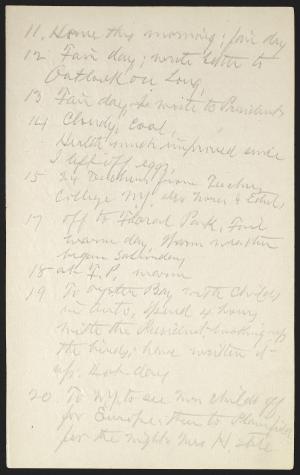 11. Home this morning; fair day
12 Fair day; write letter to
Outlook on Long,
13 Fair day, write to President
14 Cloudy, cool,
Health much improved since
I left off eggs,
15 24 Teachers from Teachers
College N.Y. also
17 off to Floral Park, Fair
warm day, Warm weather
began Saturday
18 at F.P. warm
19 To Oyster Bay with Childs
in auto, spend 4 hours
with the President looking up
the birds; have written it
up. Hot day
20. To N.Y. to see Mrs Childs off
for Europe; then to Plainfield
for the night, Mrs H.